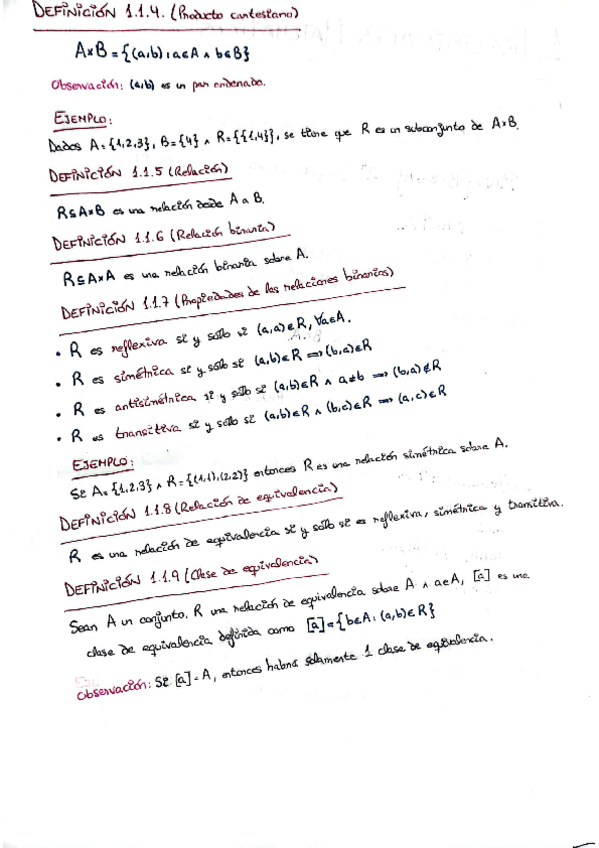 DEFINICIÓN 1.1.4. (Producto cartesiano)
A×B = {(a,b) : a∈A ∧ b∈B}
Observación: (a,b) es un par ordenado.
EJEMPLO:
Dados A={1,2,3}, B={4} ∧ R={{1,4}}, se tiene que R es un subconjunto de A×B.
DEFINICIÓN 1.1.5 (Relación)
R⊆A×B es una relación desde A a B.
DEFINICIÓN 1.1.6 (Relación binaria)
R⊆A×A es una relación binaria sobre A.
DEFINICIÓN 1.1.7 (Propiedades de las relaciones binarias)
• R es reflexiva si y sólo si (a,a)∈R, ∀a∈A.
• R es simétrica si y sólo si (a,b)∈R ⟹ (b,a)∈R
• R es antisimétrica si y sólo si (a,b)∈R ∧ a≠b ⟹ (b,a)∉R
• R es transitiva si y sólo si (a,b)∈R ∧ (b,c)∈R ⟹ (a,c)∈R
EJEMPLO:
Si A={1,2,3} ∧ R={(1,1),(2,2)} entonces R es una relación simétrica sobre A.
DEFINICIÓN 1.1.8 (Relación de equivalencia)
R es una relación de equivalencia si y sólo si es reflexiva, simétrica y transitiva.
DEFINICIÓN 1.1.9 (Clase de equivalencia)
Sean A un conjunto, R una relación de equivalencia sobre A ∧ a∈A, [a] es una
clase de equivalencia definida como [a]={b∈A : (a,b)∈R}
Observación: Si [a]=A, entonces habrá solamente 1 clase de equivalencia.